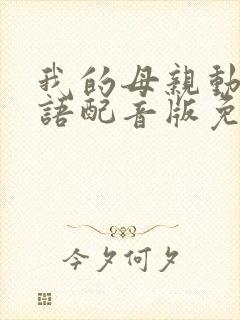 我的母親動
語配音版免
今夕何夕